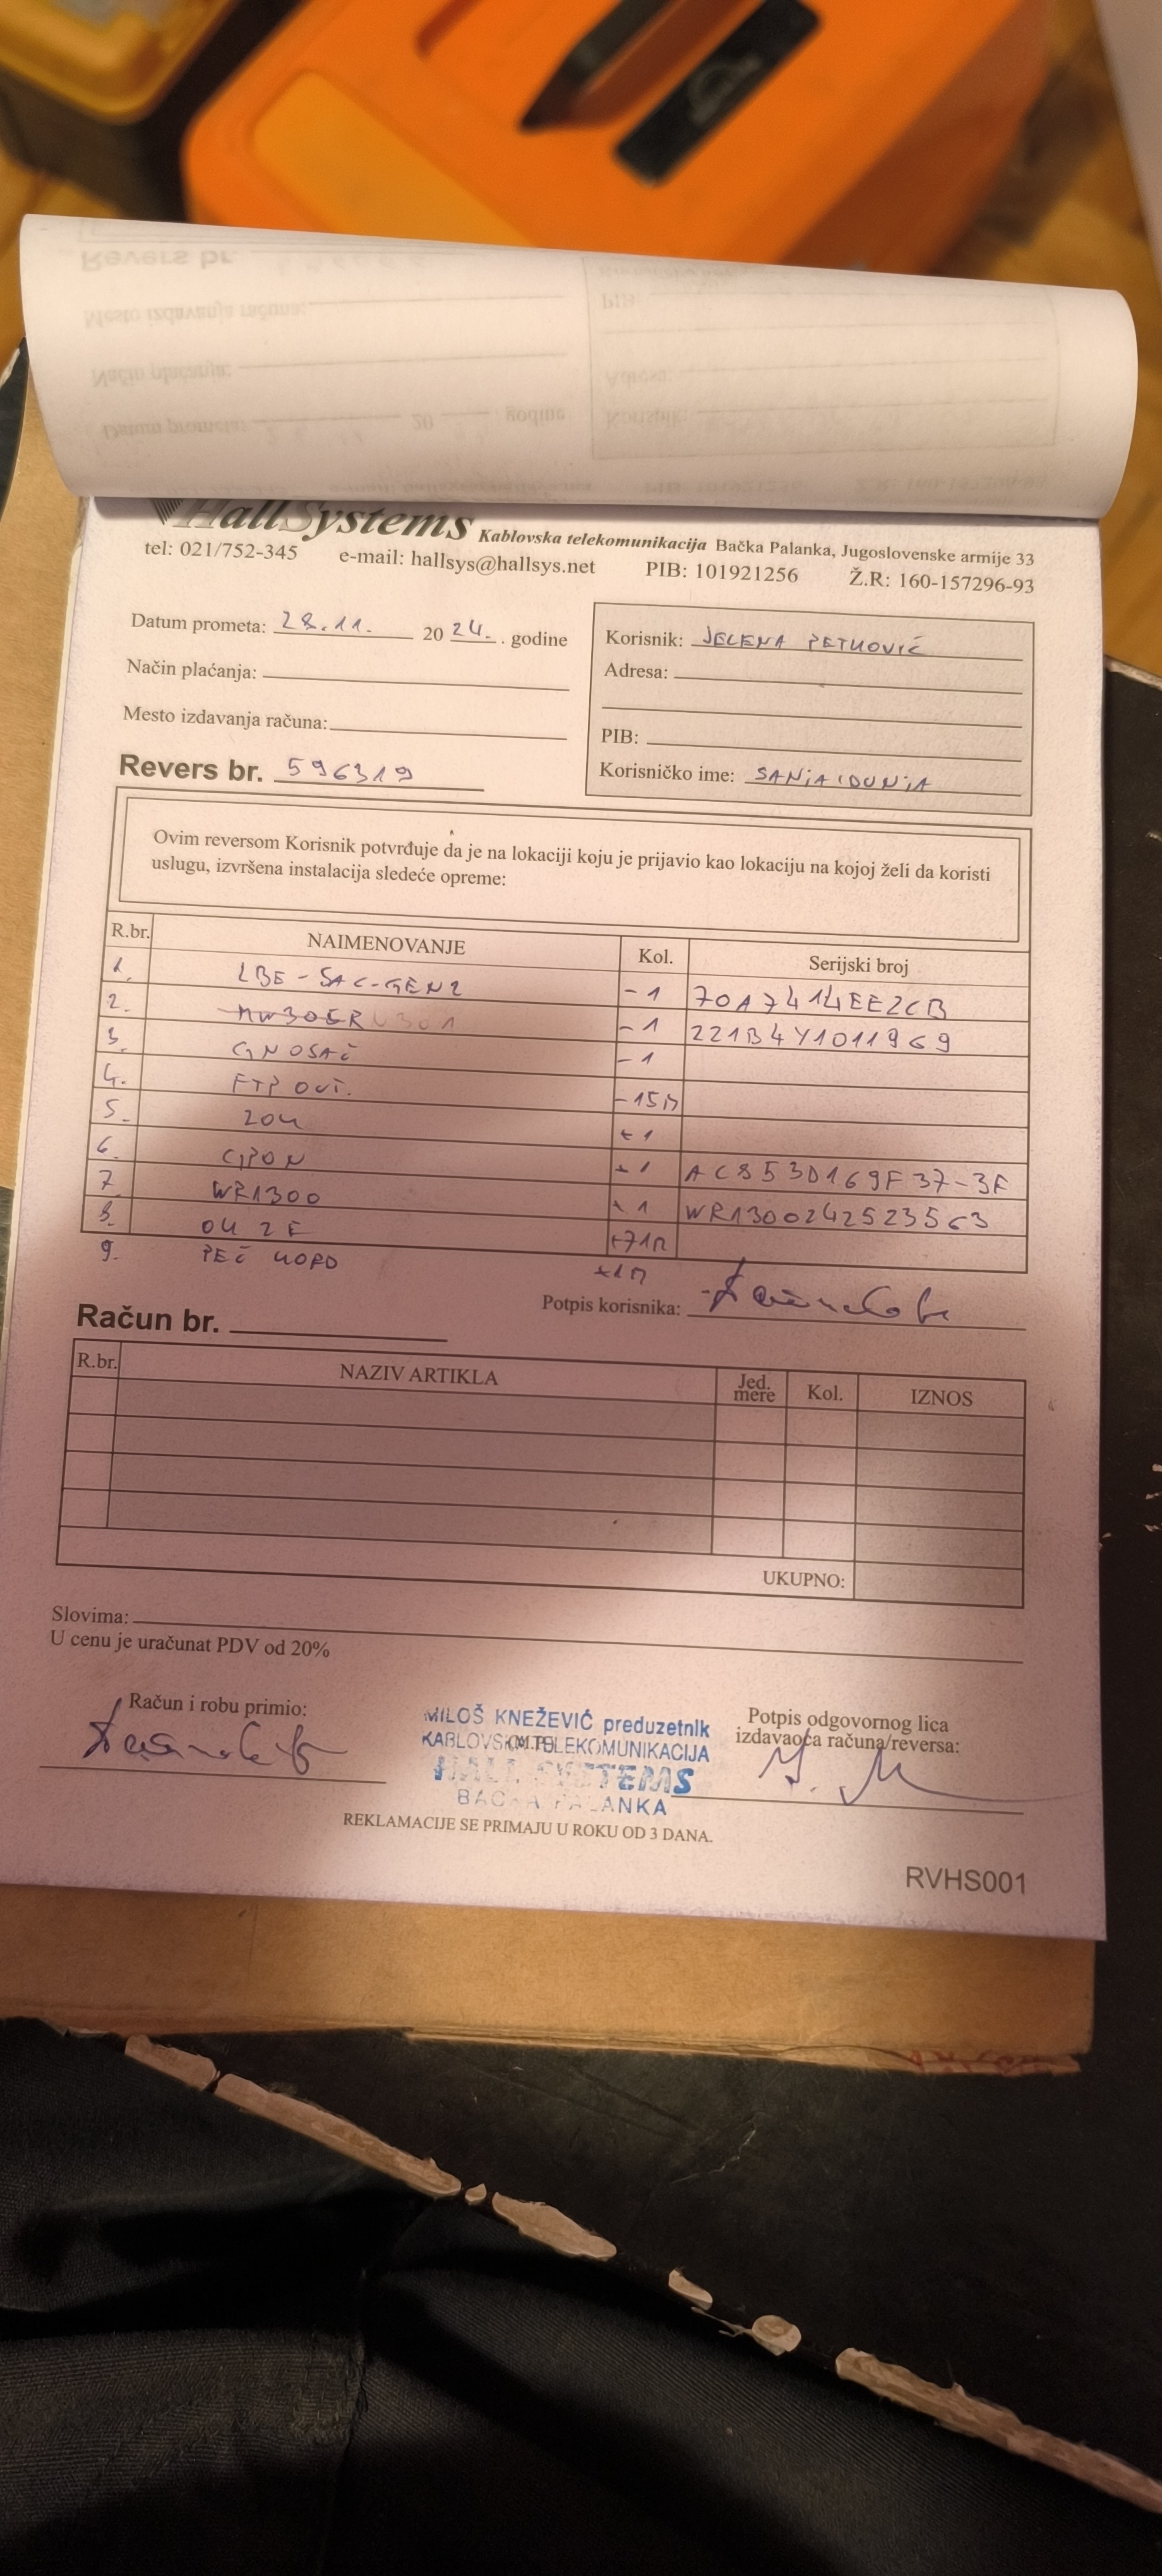 HallSystems Kablovska telekomunikacija Bačka Palanka, Jugoslovenske armije 33
tel: 021/752-345 e-mail: hallsys@hallsys.net PIB: 101921256 Ž.R: 160-157296-93
Datum prometa: 28.11. 20 24. . godine
Način plaćanja:
Mesto izdavanja računa:
Revers br. 596319
Korisnik: JELENA PETKOVIĆ
Adresa:
PIB:
Korisničko ime: SANJAIDUNJA
Ovim reversom Korisnik potvrđuje da je na lokaciji koju je prijavio kao lokaciju na kojoj želi da koristi
uslugu, izvršena instalacija sledeće opreme:
R.br. NAIMENOVANJE Kol. Serijski broj
1. LBE-5AC-GEN2 -1 70A7414EE2CB
2. MW305R -1 221B4Y1011969
3. G NOSAČ -1
4. FTP OUT. -15M
5. ZOK +1
6. GPON +1 AC853D169F37-3F
7. WR1300 +1 WR1300242523563
8. OK 2F +71M
9. PEČ KORD +1M
Potpis korisnika:
Račun br.
R.br. NAZIV ARTIKLA Jed. mere Kol. IZNOS
UKUPNO:
Slovima:
U cenu je uračunat PDV od 20%
Račun i robu primio:
MILOŠ KNEŽEVIĆ preduzetnik
KABLOVSKA TELEKOMUNIKACIJA
HALL SYSTEMS
BAČKA PALANKA
M.P.
Potpis odgovornog lica
izdavaoca računa/reversa:
REKLAMACIJE SE PRIMAJU U ROKU OD 3 DANA.
RVHS001